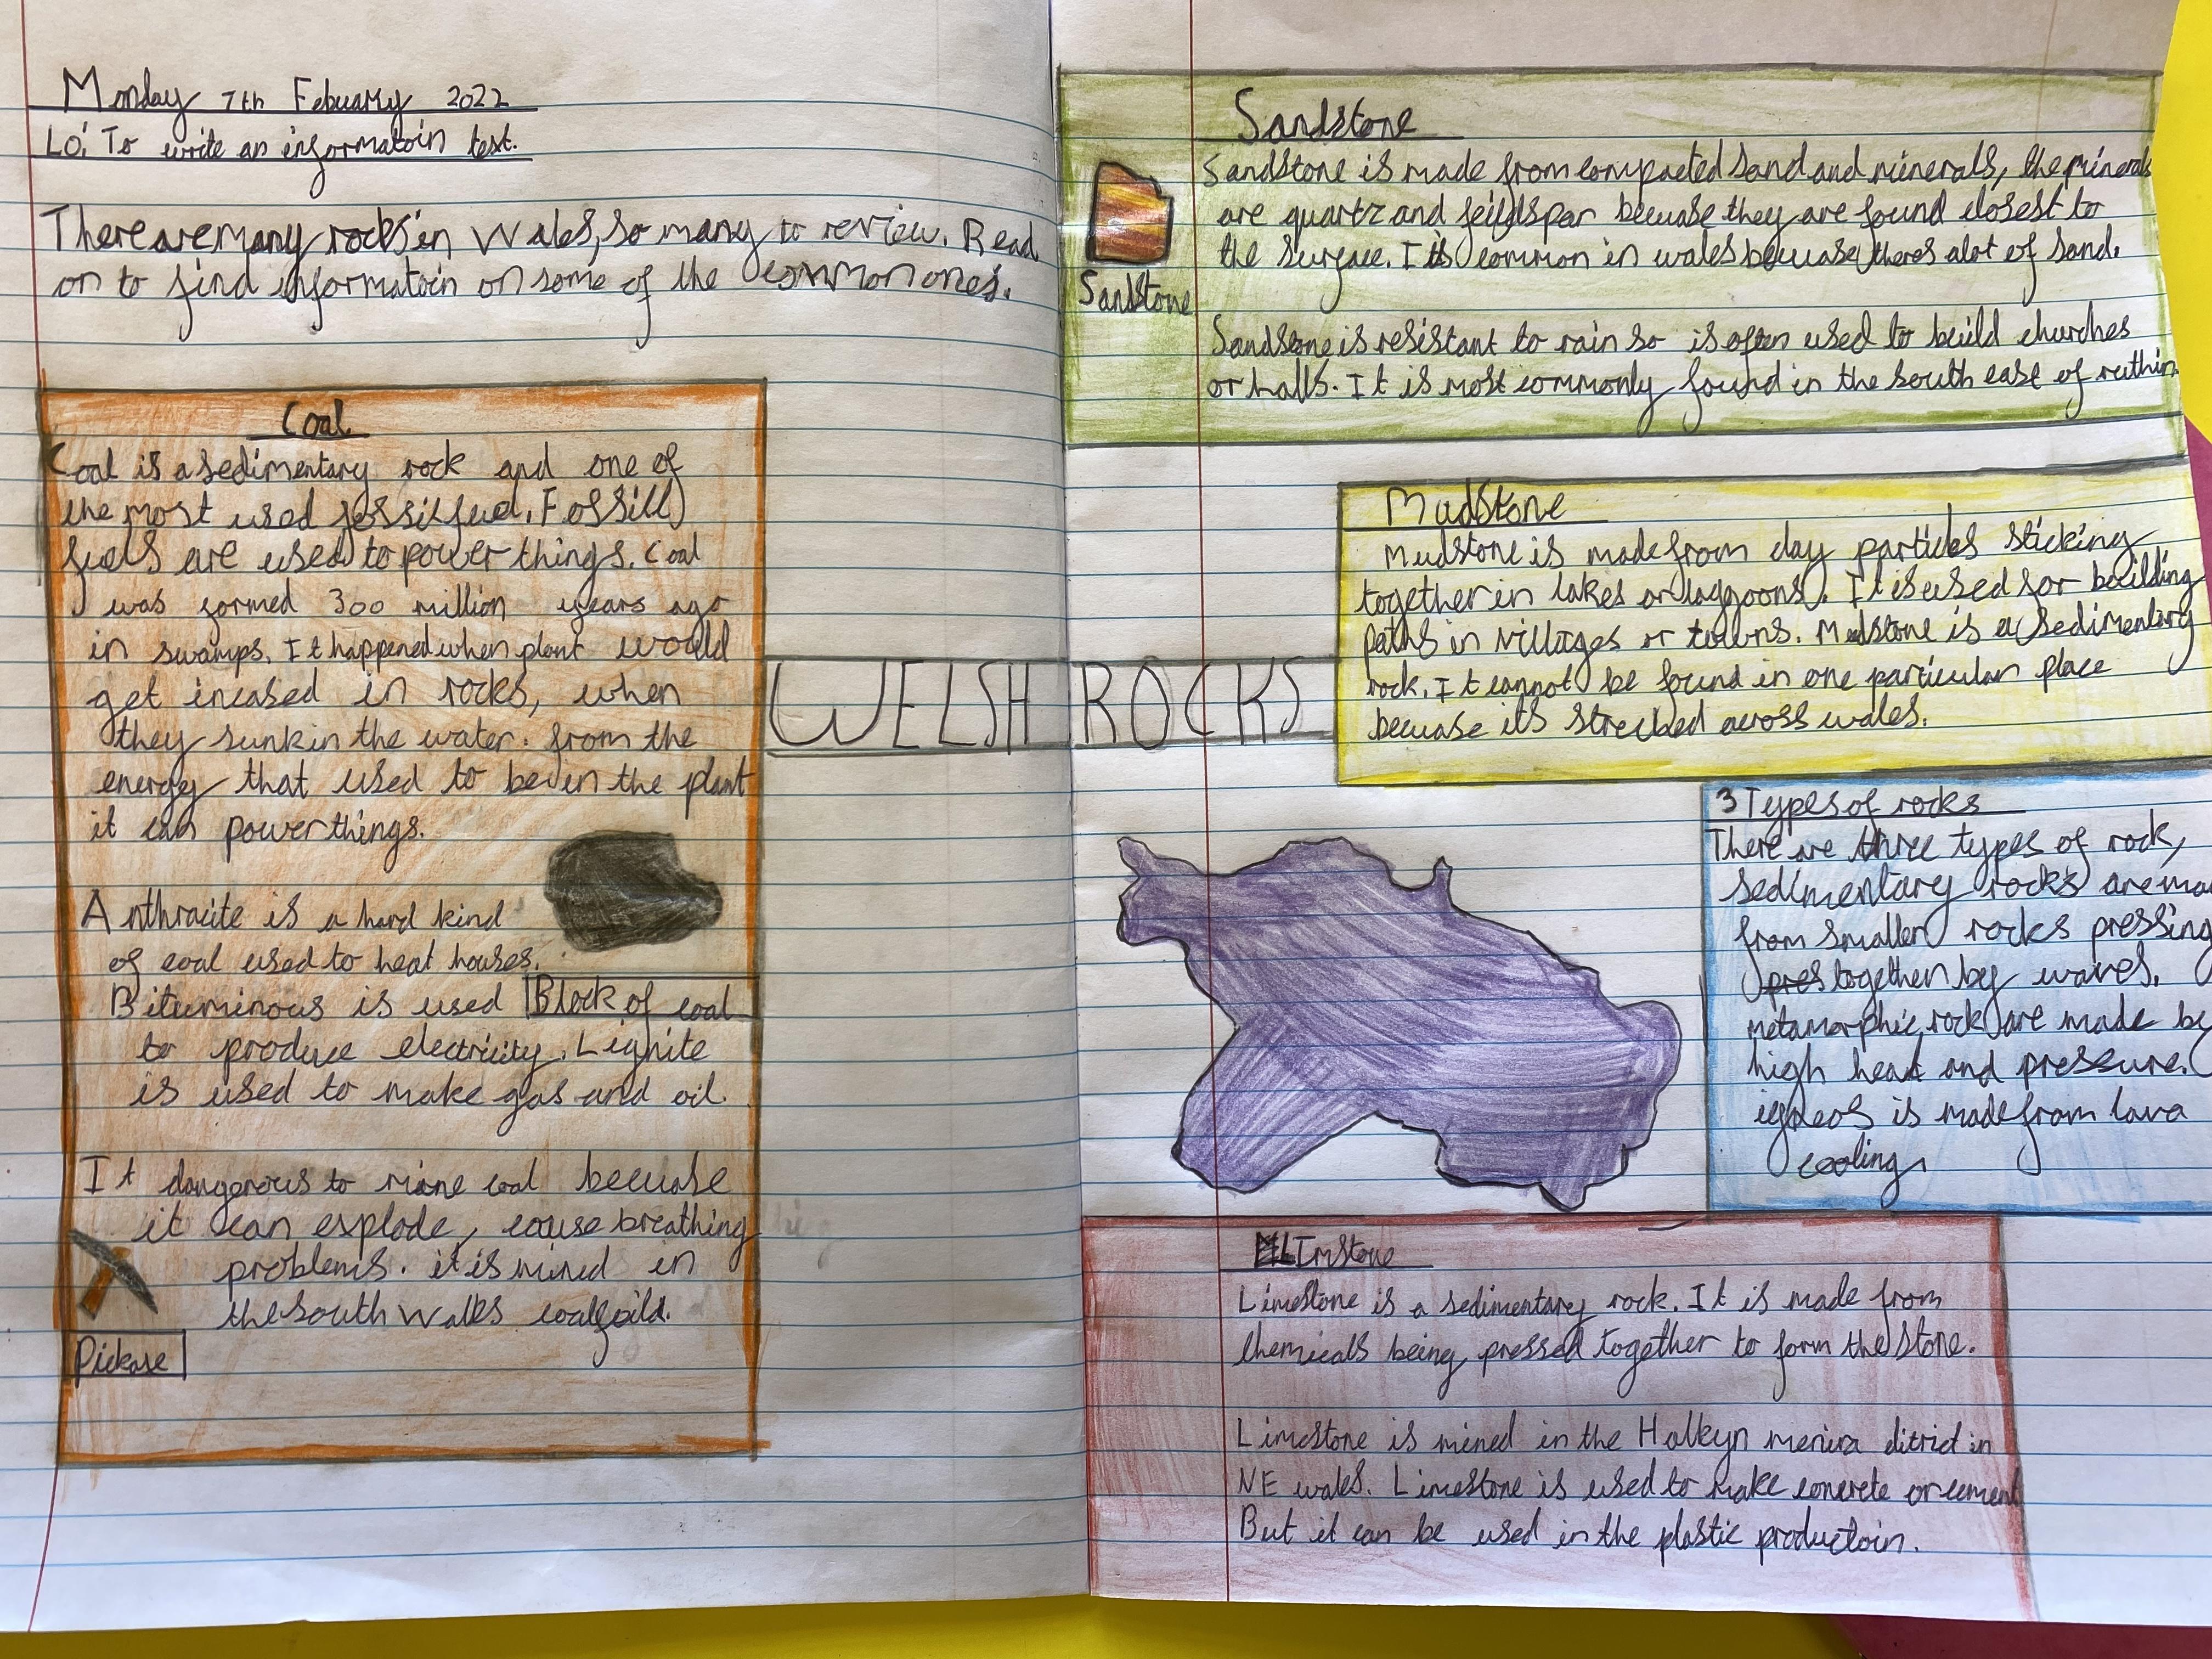 Monday 7th Febuary 2022
LO: To write an informatoin test.
There are many rocks in Wales, so many to review. Read
on to find informatoin on some of the common ones.
Coal
Coal is a sedimentary rock and one of
the most used fossil fuel. Fossill
fuels are used to power things. Coal
was formed 300 million years ago
in swamps. It happened when plant would
get incased in rocks, when
they sunk in the water. from the
energy that used to be in the plant
it can power things.
Anthracite is a hard kind
of coal used to heat houses.
Bituminous is used
Block of coal
to produce electricity. Lignite
is used to make gas and oil.
It dangerous to mine coal becuase
it can explode, couse breathing
problems. it is mined in
the South Wales coalfeild.
Pickaxe
WELSH ROCKS
Sandstone
Sandstone is made from compacted sand and minerals, the minerals
are quartz and feildspar becuase they are found closest to
the surface. It is common in wales becuase theres alot of sand.
Sandstone
Sandstone is resistant to rain so is often used to build churches
or halls. It is most commonly found in the south east of ruthin.
Mudstone
Mudstone is made from clay particles sticking
together in lakes or laggoons. It is used for building
paths in villages or towns. Mudstone is a sedimentary
rock. It cannot be found in one particular place
becuase its streched across wales.
3 Types of rocks
There are three types of rock,
sedimentary rocks are
from smaller rocks pressing
together by waves.
metamorphic rock are made by
high heat and pressure.
igneos is made from lava
cooling
Limstone
Limestone is a sedimentary rock. It is made from
chemicals being pressed together to form the stone.
Limestone is mined in the Halkyn ditrict in
NE wales. Limestone is used to make concrete or cement
But it can be used in the plastic productoin.